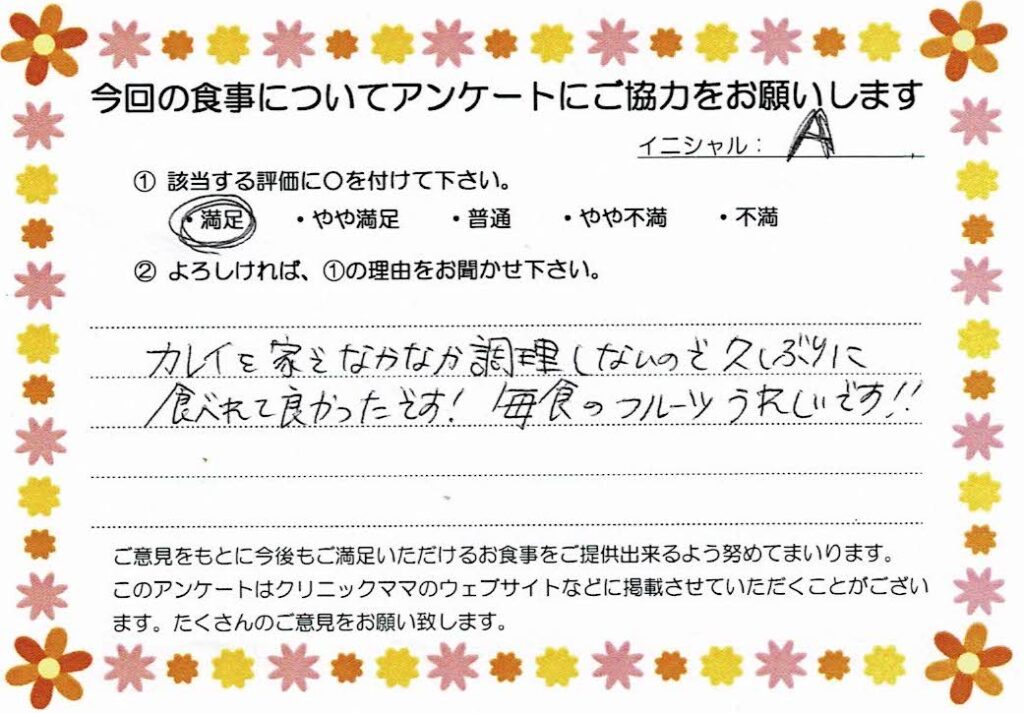 今回の食事についてアンケートにご協力をお願いします
イニシャル： A
① 該当する評価に〇を付けて下さい。
・満足 ・やや満足 ・普通 ・やや不満 ・不満
② よろしければ、①の理由をお聞かせ下さい。
カレイを家でなかなか調理しないので久しぶりに
食べれて良かったです! 毎食のフルーツうれしいです!!
ご意見をもとに今後もご満足いただけるお食事をご提供出来るよう努めてまいります。
このアンケートはクリニックママのウェブサイトなどに掲載させていただくことがござい
ます。たくさんのご意見をお願い致します。